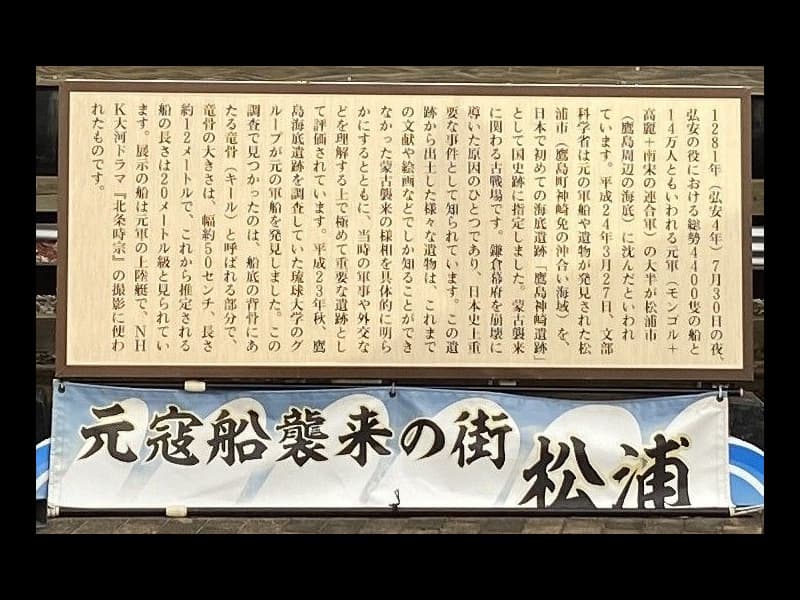 1281年（弘安4年）7月30日の夜、
弘安の役における総勢4400隻の船と
14万人ともいわれる元軍（モンゴル＋
高麗＋南宋の連合軍）の大半が松浦市
（鷹島周辺の海底）に沈んだといわれ
ています。平成24年3月27日、文部
科学省は元の軍船や遺物が発見された松
浦市（鷹島町神崎免の沖合い海域）を、
日本で初めての海底遺跡「鷹島神崎遺跡」
として国史跡に指定しました。蒙古襲来
に関わる古戦場です。鎌倉幕府を崩壊に
導いた原因のひとつであり、日本史上重
要な事件として知られています。この遺
跡から出土した様々な遺物は、これまで
の文献や絵画などでしか知ることができ
なかった蒙古襲来の様相を具体的に明ら
かにするとともに、当時の軍事や外交な
どを理解する上で極めて重要な遺跡とし
て評価されています。平成23年秋、鷹
島海底遺跡を調査していた琉球大学のグ
ループが元の軍船を発見しました。この
調査で見つかったのは、船底の背骨にあ
たる竜骨（キール）と呼ばれる部分で、
竜骨の大きさは、幅約50センチ、長さ
約12メートルで、これから推定される
船の長さは20メートル級と見られてい
ます。展示の船は元軍の上陸艇で、NH
K大河ドラマ『北条時宗』の撮影に使わ
れたものです。
元寇船襲来の街 松浦